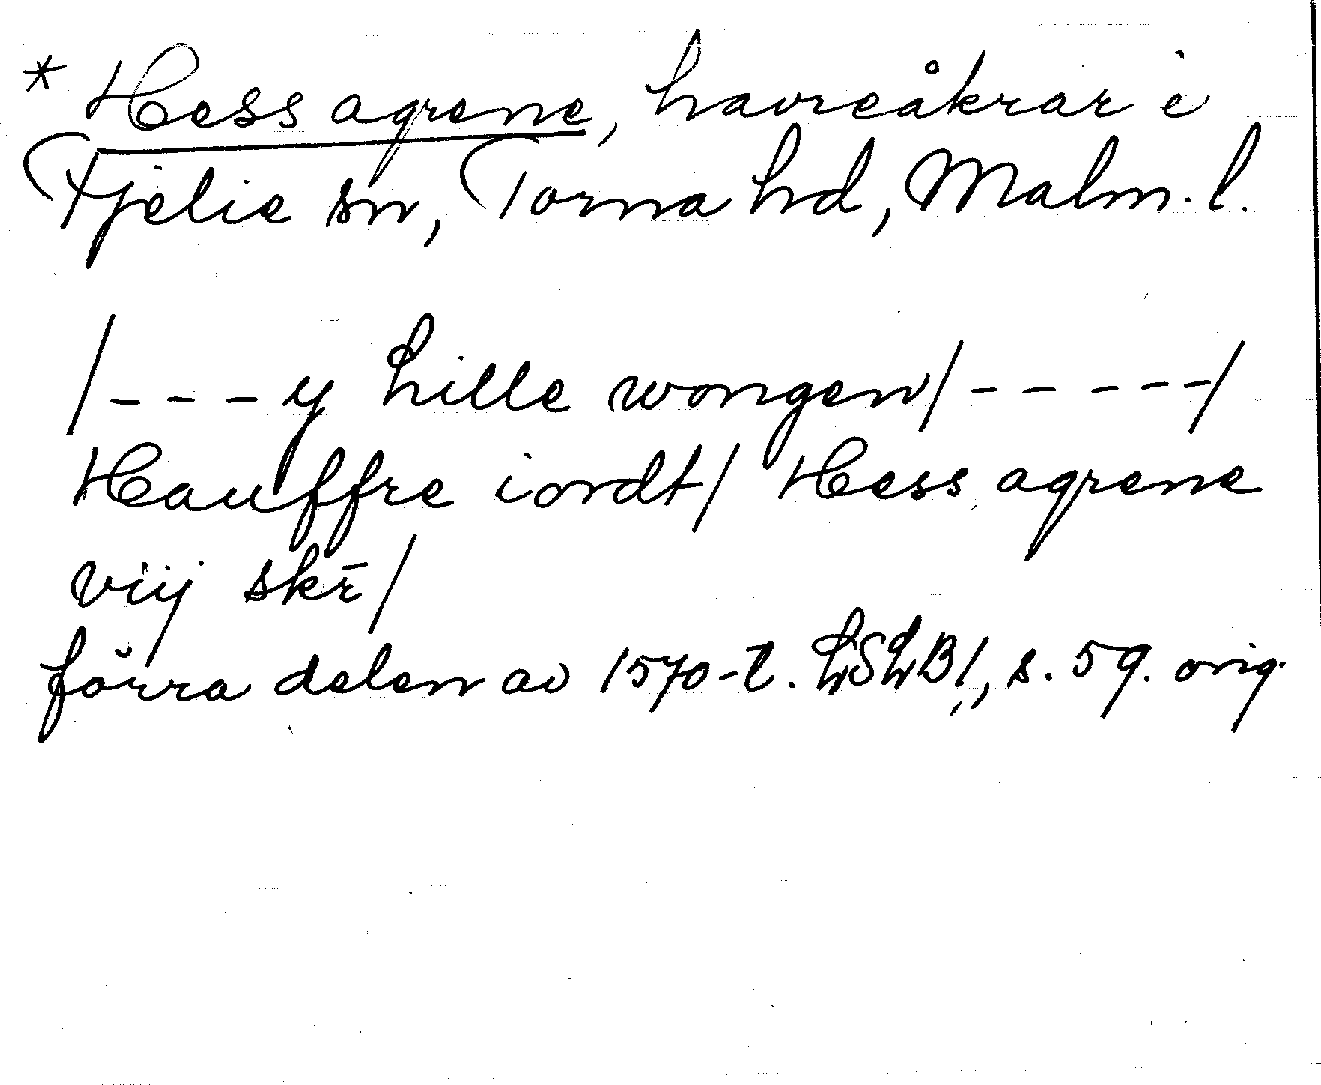 * Hess agrene, havreåkrar i
Fjelie sn, Torna hd, Malm. l.
/ - - - y hille wongen / - - - - - /
Hauffre iordt / Hess agrene
viij skr̄ /
förra delen av 1570-t. LSLB1, s. 59. orig.